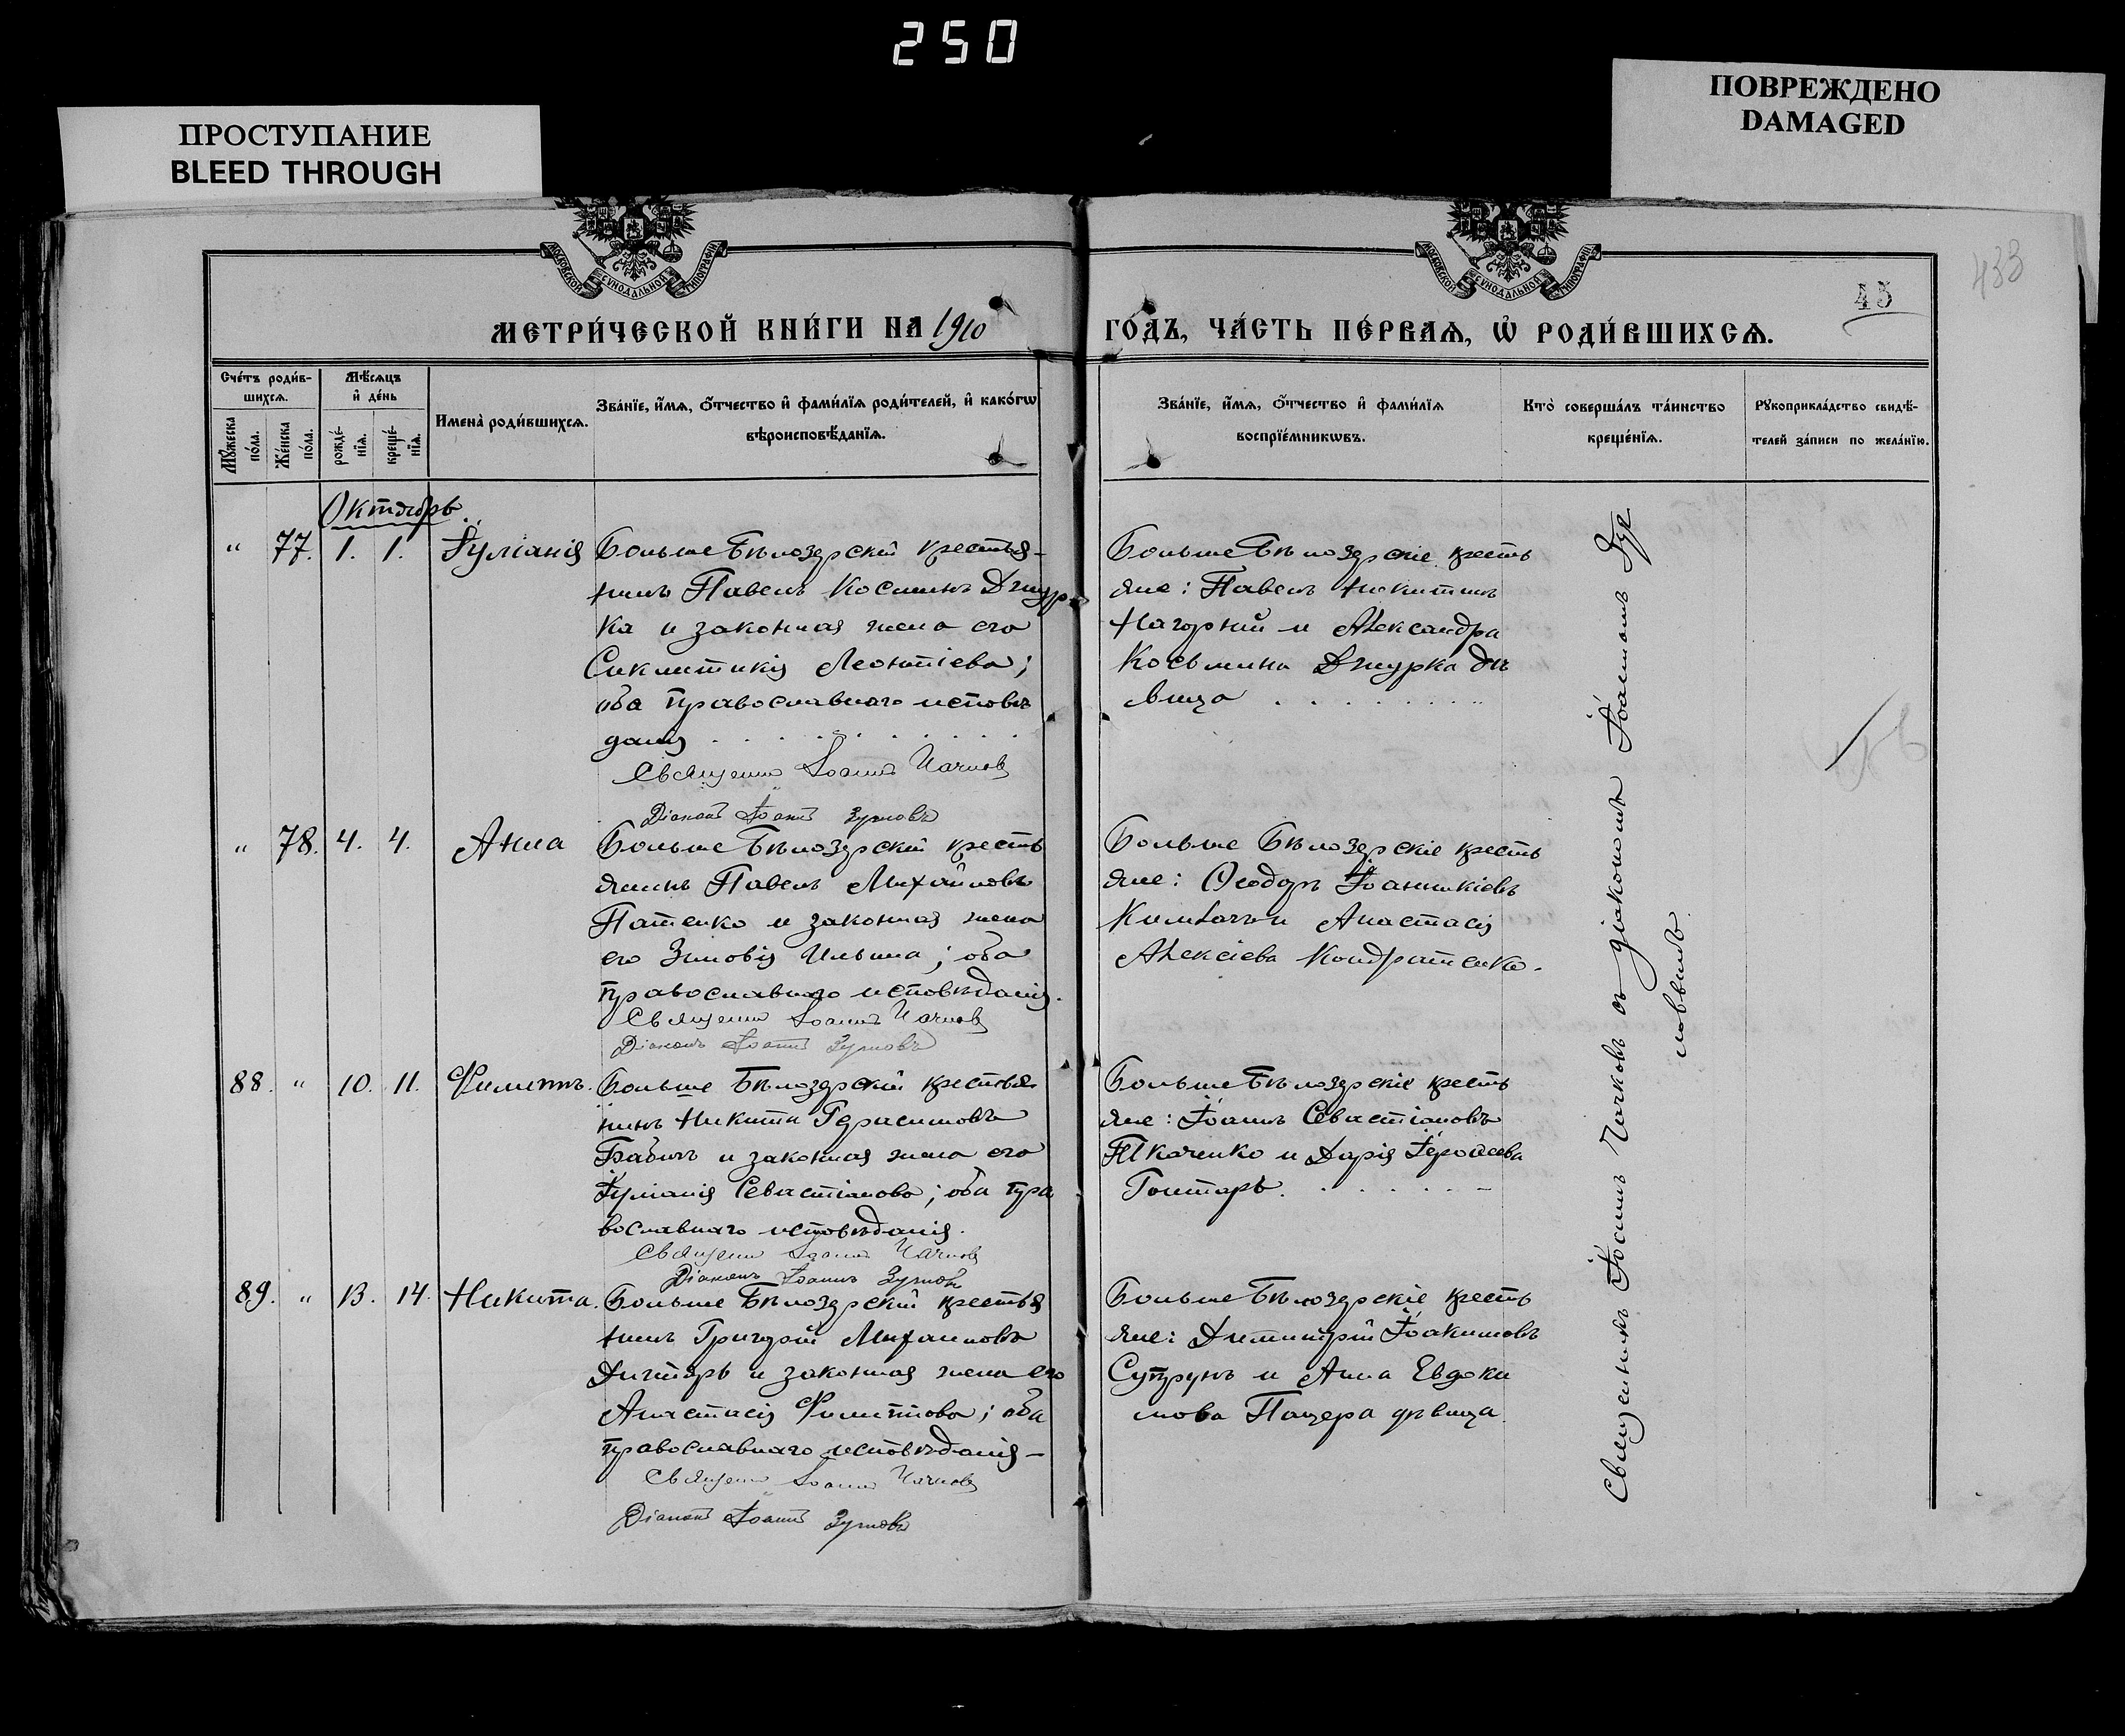 250
ПРОСТУПАНИЕ
BLEED THROUGH
ПОВРЕЖДЕНО
DAMAGED
433
45
МОСКОВСКОЙ СУНОДАЛЬНОЙ ТИПОГРАФІИ
МОСКОВСКОЙ СУНОДАЛЬНОЙ ТИПОГРАФІИ
МЕТРИ́ЧЕСКОЙ КНИ́ГИ НА 1910
ГО́ДЪ, ЧА́СТЬ ПЕ́РВАѦ, Ѡ҆ РОДИ́ВШИХСѦ.
Сче́тъ роди́в-
шихсѧ.
Мѣ́сѧцъ
и҆ де́нь
Мꙋ́жеска по́ла.
Же́нска по́ла.
рожде́-
нїѧ.
креще́-
нїѧ.
Имена̀ роди́вшихсѧ.
Зва́нїе, и҆́мѧ, ѻ҆́тчество и҆ фами́лїѧ роди́телей, и҆ како́гѡ
вѣроисповѣ́данїѧ.
Зва́нїе, и҆́мѧ, ѻ҆́тчество и҆ фами́лїѧ
воспрїе́мникѡвъ.
Кто̀ соверша́лъ та́инство
креще́нїѧ.
Рꙋкоприкла́дство свидѣ́-
телей за́писи по жела́нїю.
Октябрь.
" 77. 1. 1. Іуліанія
Больше Бѣлозерскій крестья-
нинъ Павелъ Косминъ Джур
ка и законная жена его
Синклитикія Леонтіева;
оба православнаго исповѣ
данія
Священникъ Іоаннъ Чачковъ
Діаконъ Іоаннъ
Больше Бѣлозерскіе кресть
яне: Павелъ Никитинъ
Нагорній и Александра
Косьмина Джурка дѣ
вица
" 78. 4. 4. Анна
Больше Бѣлозерскій кресть
янинъ Павелъ Михайловъ
Патенко и законная жена
его Зиновія Ильина; оба
православнаго исповѣданія.
Священникъ Іоаннъ Чачковъ
Діаконъ Іоаннъ
Больше Бѣлозерскіе кресть
яне: Ѳеодоръ Іоанникіевъ
и Анастасія
Алексіева Кондратенко.
88. " 10. 11. Филиппъ.
Больше Бѣлозерскій крестья
нинъ Никита Герасимовъ
Бабичъ и законная жена его
Іуліанія Севастіанова; оба пра
вославнаго исповѣданія.
Священникъ Іоаннъ Чачковъ
Діаконъ Іоаннъ
Больше Бѣлозерскіе кресть
яне: Іоаннъ Севастіановъ
Ткаченко и Дарія
Гонтарь.
89. " 13. 14. Никита.
Больше Бѣлозерскій крестья
нинъ Григорій Михайловъ
Дигтярь и законная жена его
Анастасія Филиппова; оба
православнаго исповѣданія —
Священникъ Іоаннъ Чачковъ
Діаконъ Іоаннъ
Больше Бѣлозерскіе кресть
яне: Димитрій Іоакимовъ
Супрунъ и Анна Евдоки
мова Пащера дѣвица.
Священникъ Іоаннъ Чачковъ съ діакономъ Іоанномъ